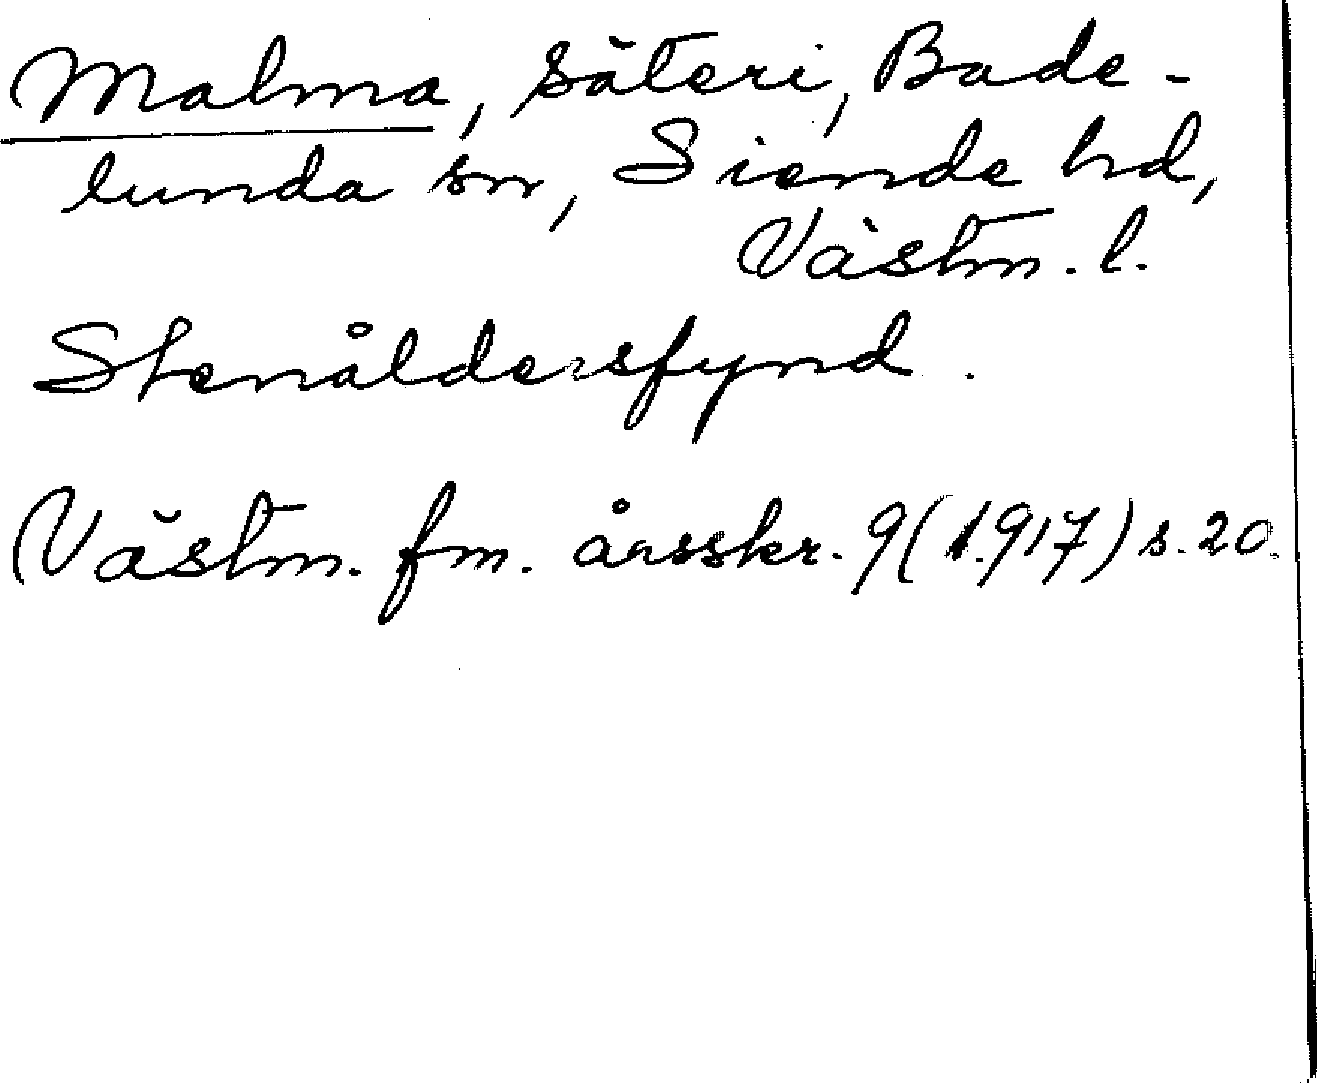 Malma, säteri, Bade-
lunda sn, Siende hd,
Västm. l.
Stenåldersfynd.
Västm. fm. årsskr. 9 (1917) s. 20.